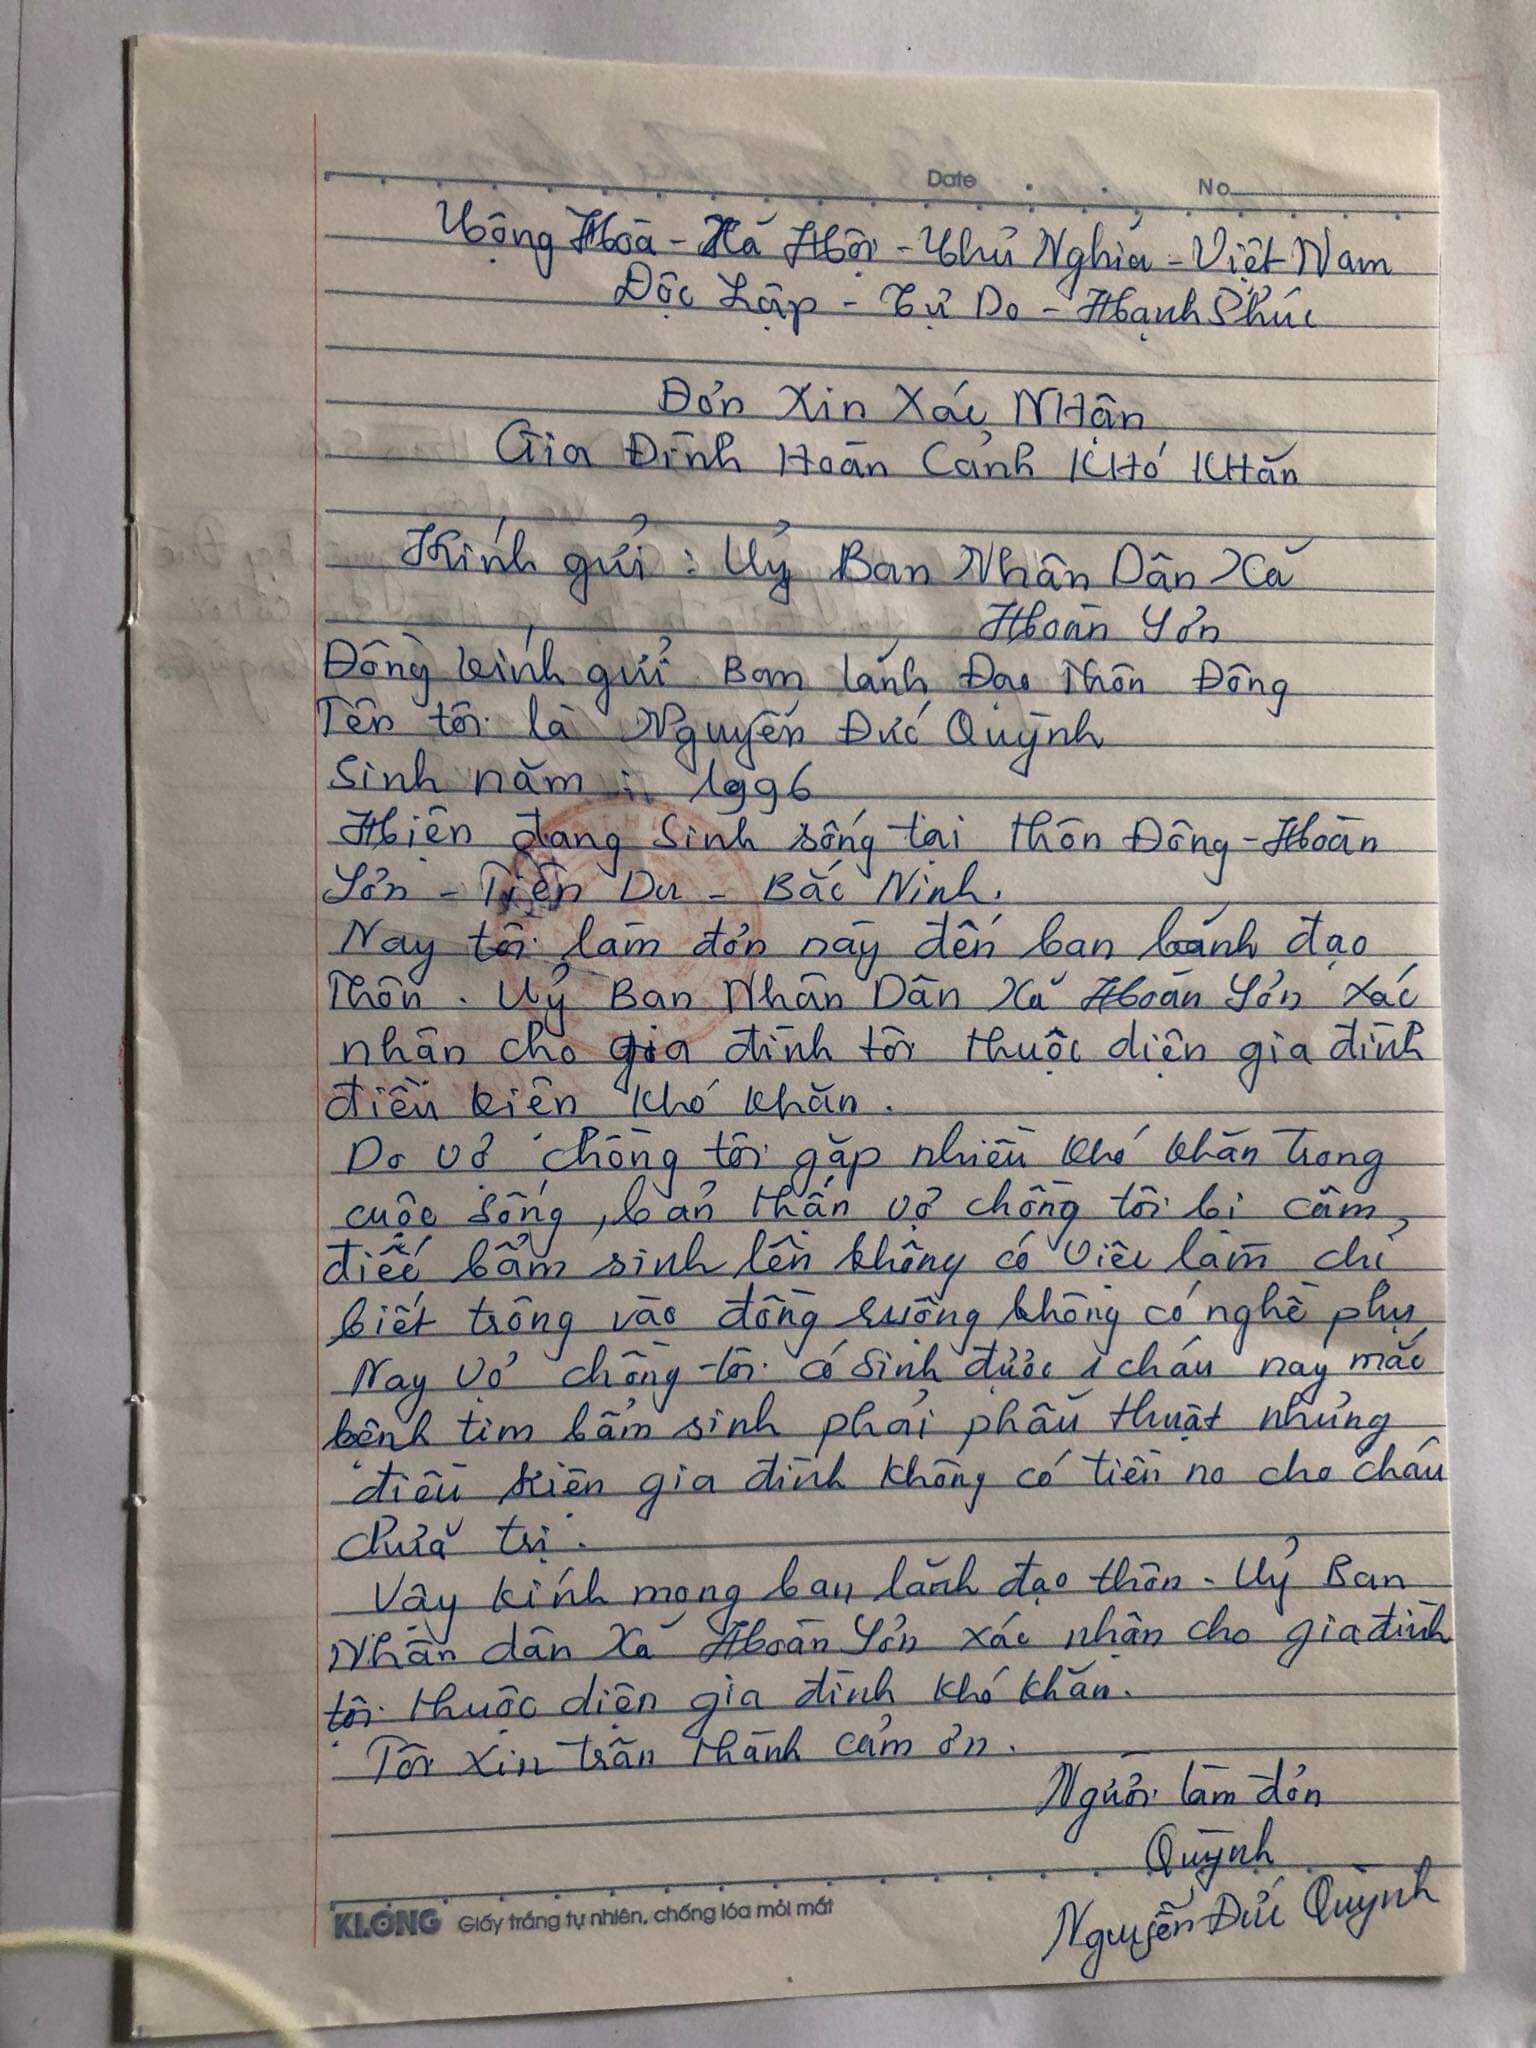 Date No
Cộng Hòa - Xã Hội - Chủ Nghĩa - Việt Nam
Độc Lập - Tự Do - Hạnh Phúc
Đơn Xin Xác Nhận
Gia Đình Hoàn Cảnh Khó Khăn
Kính gửi : Uỷ Ban Nhân Dân Xã
Hoàn Sơn
Đồng kính gửi Ban lãnh Đạo Thôn Đông
Tên tôi là Nguyễn Đức Quỳnh
Sinh năm : 1996
Hiện đang sinh sống tại thôn Đông - Hoàn
Sơn - Tiên Du - Bắc Ninh.
Nay tôi làm đơn này đến ban lãnh đạo
Thôn. Uỷ Ban Nhân Dân Xã Hoàn Sơn xác
nhận cho gia đình tôi thuộc diện gia đình
điều kiện khó khăn.
Do vợ chồng tôi gặp nhiều khó khăn trong
cuộc sống, bản thân vợ chồng tôi bị câm,
điếc bẩm sinh lên không có việc làm chỉ
biết trông vào đồng ruộng không có nghề phụ
Nay vợ chồng tôi có sinh được 1 cháu nay mắc
bệnh tim bẩm sinh phải phẫu thuật nhưng
điều kiện gia đình không có tiền no cho cháu
chữa trị.
Vậy kính mong ban lãnh đạo thôn - Uỷ Ban
Nhân dân Xã Hoàn Sơn xác nhận cho gia đình
tôi thuộc diện gia đình khó khăn.
Tôi xin trân thành cảm ơn.
Người làm đơn
Quỳnh
Nguyễn Đức Quỳnh
KLONG Giấy trắng tự nhiên, chống lóa mỏi mắt